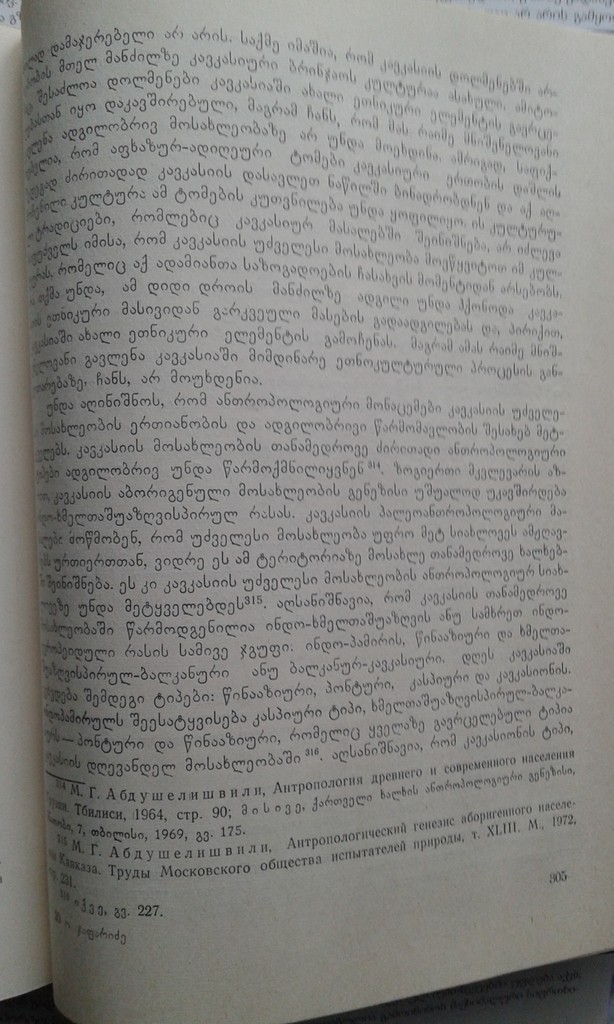 დამაჯერებელი არ არის. საქმე იმაშია, რომ კავკასიის დოლმენებში არ-
მთელ მანძილზე კავკასიური ბრინჯაოს კულტურაა ასახული. ამიტო-
შესაძლოა დოლმენები კავკასიაში ახალი ეთნიკური ელემენტის გავრცე-
იყო დაკავშირებული, მაგრამ ჩანს, რომ მას რაიმე მნიშვნელოვანი
ადგილობრივ მოსახლეობაზე არ უნდა მოეხდინა. ამრიგად, საფიქ-
რომ აფხაზურ-ადიღეური ტომები კავკასიური ერთობის დაშლის
ძირითადად კავკასიის დასავლეთ ნაწილში ბინადრობდნენ და აქ აღ-
კულტურა ამ ტომების კუთვნილება უნდა ყოფილიყო. ის კულტურუ-
ტრადიციები, რომლებიც კავკასიურ მასალებში შეინიშნება, არ იძლევა
იმისა, რომ კავკასიის უძველესი მოსახლეობა მოვწყვიტოთ იმ კულ-
რომელიც აქ ადამიანთა საზოგადოების ჩასახვის მომენტიდან არსებობს.
თქმა უნდა, ამ დიდი დროის მანძილზე ადგილი უნდა ჰქონოდა კავკა-
ეთნიკური მასივიდან გარკვეული მასების გადაადგილებას და, პირიქით,
ახალი ეთნიკური ელემენტის გამოჩენას. მაგრამ ამას რაიმე მნიშ-
გავლენა კავკასიაში მიმდინარე ეთნოკულტურული პროცესის გან-
ჩანს, არ მოუხდენია.
უნდა აღინიშნოს, რომ ანთროპოლოგიური მონაცემები კავკასიის უძველე-
მოსახლეობის ერთიანობის და ადგილობრივი წარმომავლობის შესახებ მეტ-
კავკასიის მოსახლეობის თანამედროვე ძირითადი ანთროპოლოგიური
ადგილობრივ უნდა წარმოქმნილიყვნენ³¹⁴. ზოგიერთი მკვლევარის აზ-
კავკასიის აბორიგენული მოსახლეობის გენეზისი უშუალოდ უკავშირდება
ხმელთაშუაზღვისპირულ რასას. კავკასიის პალეოანთროპოლოგიური მა-
მოწმობენ, რომ უძველესი მოსახლეობა უფრო მეტ სიახლოვეს ამჟღავ-
ურთიერთთან, ვიდრე ეს ამ ტერიტორიაზე მოსახლე თანამედროვე ხალხებ-
შეინიშნება. ეს კი კავკასიის უძველესი მოსახლეობის ანთროპოლოგიურ სიახ-
უნდა მეტყველებდეს³¹⁵. აღსანიშნავია, რომ კავკასიის თანამედროვე
წარმოდგენილია ინდო-ხმელთაშუაზღვის ანუ სამხრეთ ინდო-
რასის სამივე ჯგუფი: ინდო-პამირის, წინააზიური და ხმელთა-
ბალკანური ანუ ბალკანურ-კავკასიური. დღეს კავკასიაში
შემდეგი ტიპები: წინააზიური, პონტური, კასპიური და კავკასიონის.
შეესატყვისება კასპიური ტიპი, ხმელთაშუაზღვისპირულ-ბალკა-
— პონტური და წინააზიური, რომელიც ყველაზე გავრცელებული ტიპია
დღევანდელ მოსახლეობაში³¹⁶. აღსანიშნავია, რომ კავკასიონის ტიპი,
³¹⁴ М. Г. Абдушелишвили, Антропология древнего и современного населения
Тбилиси, 1964, стр. 90; მისივე, ქართველი ხალხის ანთროპოლოგიური გენეზისი,
7, თბილისი, 1969, გვ. 175.
³¹⁵ М. Г. Абдушелишвили, Антропологический генезис аборигенного населе-
Кавказа. Труды Московского общества испытателей природы, т. XLIII. М., 1972,
231.
³¹⁶ იქვე, გვ. 227.
ჯაფარიძე
305